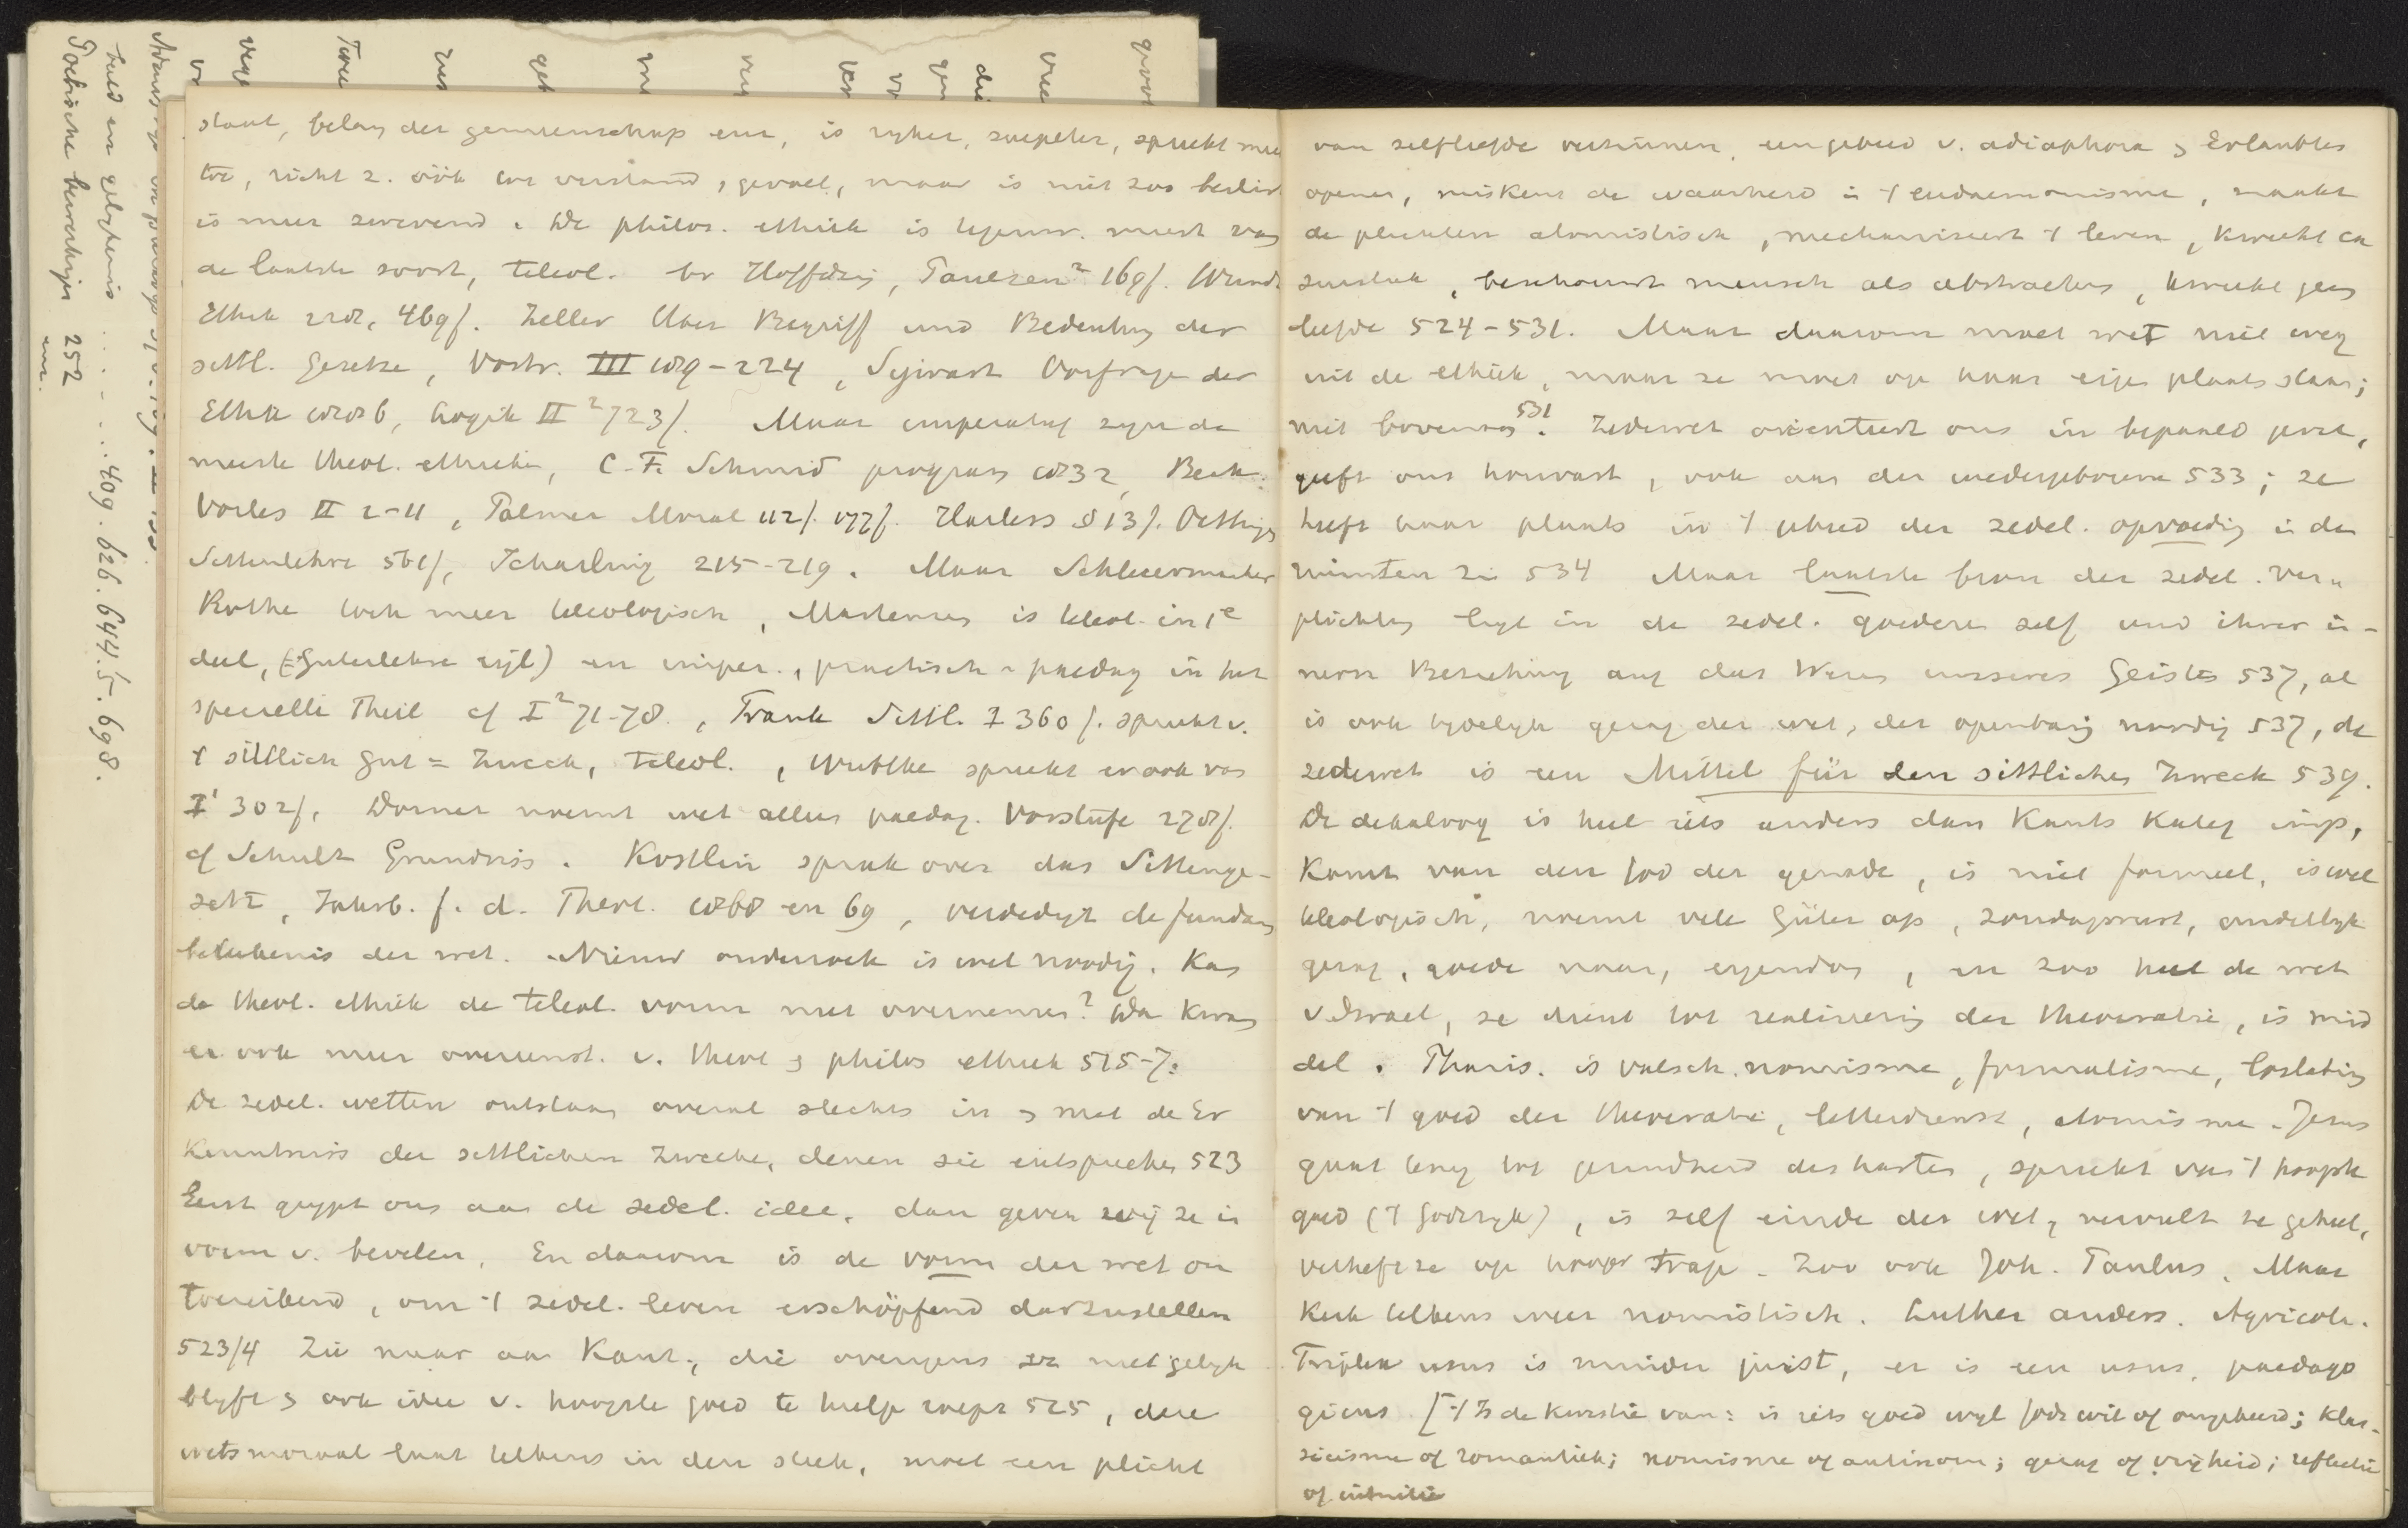 staat, belang der gemeenschap enz, is ryker, soepeler, spreekt meer
toe, richt z. óók tot verstand, gevoel, maar is niet zoo beslist
is meer zwevend. De philos. ethiek is tegenw. meest van
de laatste soort, teleol. bv Höffding, Paulsen² 169f. Wundt
Ethik 469f. Zeller Über Begriff und Bedeutung der
sittl. Gesetze, Vortr. III 189-224, Sigwart Vorfrage der
Ethik 1886, Logik II² 723f. Maar imperatief zyn de
meeste theol. ethieken, C. F. Schmid program 1832, Beck
Vorles II 1-11, Palmer Moral 112f. 177f. Harless § 13f. Oettingen
Sittenlehre 561f, Scharling 215-219. Maar Schleiermacher
Rothe toch meer teleologisch, Martensen is teleol. in 1e
deel, (Güterlehre ryl) en imper., practisch-paedag in het
specielle Theil cf I² 71-78, Frank Sittl. I 360f. spreekt v.
't sittlich Gut = Zweck, teleol., Wuttke spreekt er ook van
I' 302f. Dorner noemt wet alleen paedag. Vorstufe 278f.
cf Schultz Grundriss. Köstlin sprak over das Sittenge-
setz, Jahrb. f. d. Theol. 1868 en 69, verdedigt de fundam
beteekenis der wet. Nieuw onderzoek is wel noodig. Kan
de theol. ethiek de teleol. vorm niet overnemen? Dan kwam
er ook meer overeenst. v. theol & philos ethiek 515-7.
De zedel. wetten ontstaan overal slechts in & met de Er
kenntniss der sittlichen Zwecke, denen sie entsprechen 523
Eerst grypt ons aan de zedel. idee, dan geven wij ze in
vorm v. bevelen. En daarom is de vorm der wet on
toereikend, om 't zedel. leven erschöpfend darzustellen
523/4 Zie maar aan Kant, die overigens niet gelyk
blyft & ook idee v. hoogste goed te hulp roept 525, deze
wetsmoraal laat telkens in den steek, moet een plicht
van zelfliefde verzinnen, een gebied v. adiaphora & Erlaubtes
openen, miskent de waarheid in 't eudaemonisme, maakt
de plichten atomistisch, mechaniseert 't leven, kweekt ca
suistiek, beschouwt mensch als abstractum, kweekt geen
liefde 524-531. Maar daarom moet wet niet weg
uit de ethiek, maar ze moet op haar eigen plaats staan;
niet bovenaan 531. Zedewet orienteert ons in bepaald geval,
geeft ons houvast, ook aan den wedergeborene 533; ze
heeft haar plaats in 't gebied der zedel. opvoeding in den
ruimsten zin 534 Maar laatste bron der zedel. ver-
plichting ligt in de zedel. goederen zelf und ihrer in-
neren Beziehung auf das Wesen unseres Geistes 537, al
is ook tydelyk gezag der wet, der openbaring noodig 537, de
zedewet is een Mittel für den sittlichen Zweck 539.
De dekaloog is heel iets anders dan Kants Kateg imp,
komt van den God der genade, is niet formeel, is wel
teleologisch, noemt vele Güter op, zondagsrust, ouderlyk
gezag, goede naam, eigendom, en zoo heel de wet
v Israel, ze dient tot realiseering der theocratie, is mid
del. Pharis. is valsch nomisme, formalisme, loslating
van 't goed der theocratie, letterdienst, atomisme. Jezus
gaat terug tot gezindheid des harten, spreekt van 't hoogste
goed ('t Godsryk), is zelf einde der wet, vervult ze geheel,
verheft ze op hooger trap. Zoo ook Joh. Paulus. Maar
Kerk telkens weer nomistisch. Luther anders. Agricola.
Triplex usus is minder juist, er is een usus, paedago
gicus. ['t Is de kwestie van: is iets goed wyl Gods wil of omgekeerd; Klas-
sicisme of romantiek; nomisme of antinom; gezag of vrijheid; reflectie
of intuitie
Poetische bewerkingen 252
enz.
beeld en gelykenis ....... 409. 626. 644.5. 698.